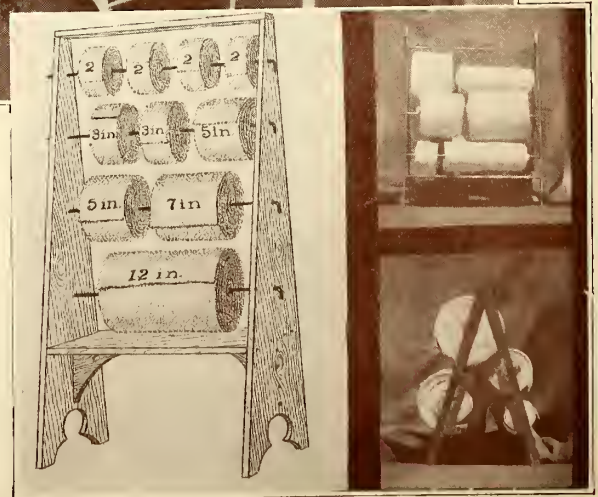 2 2 2 2
3in. 3in. 5in.
5in. 7in
12 in.